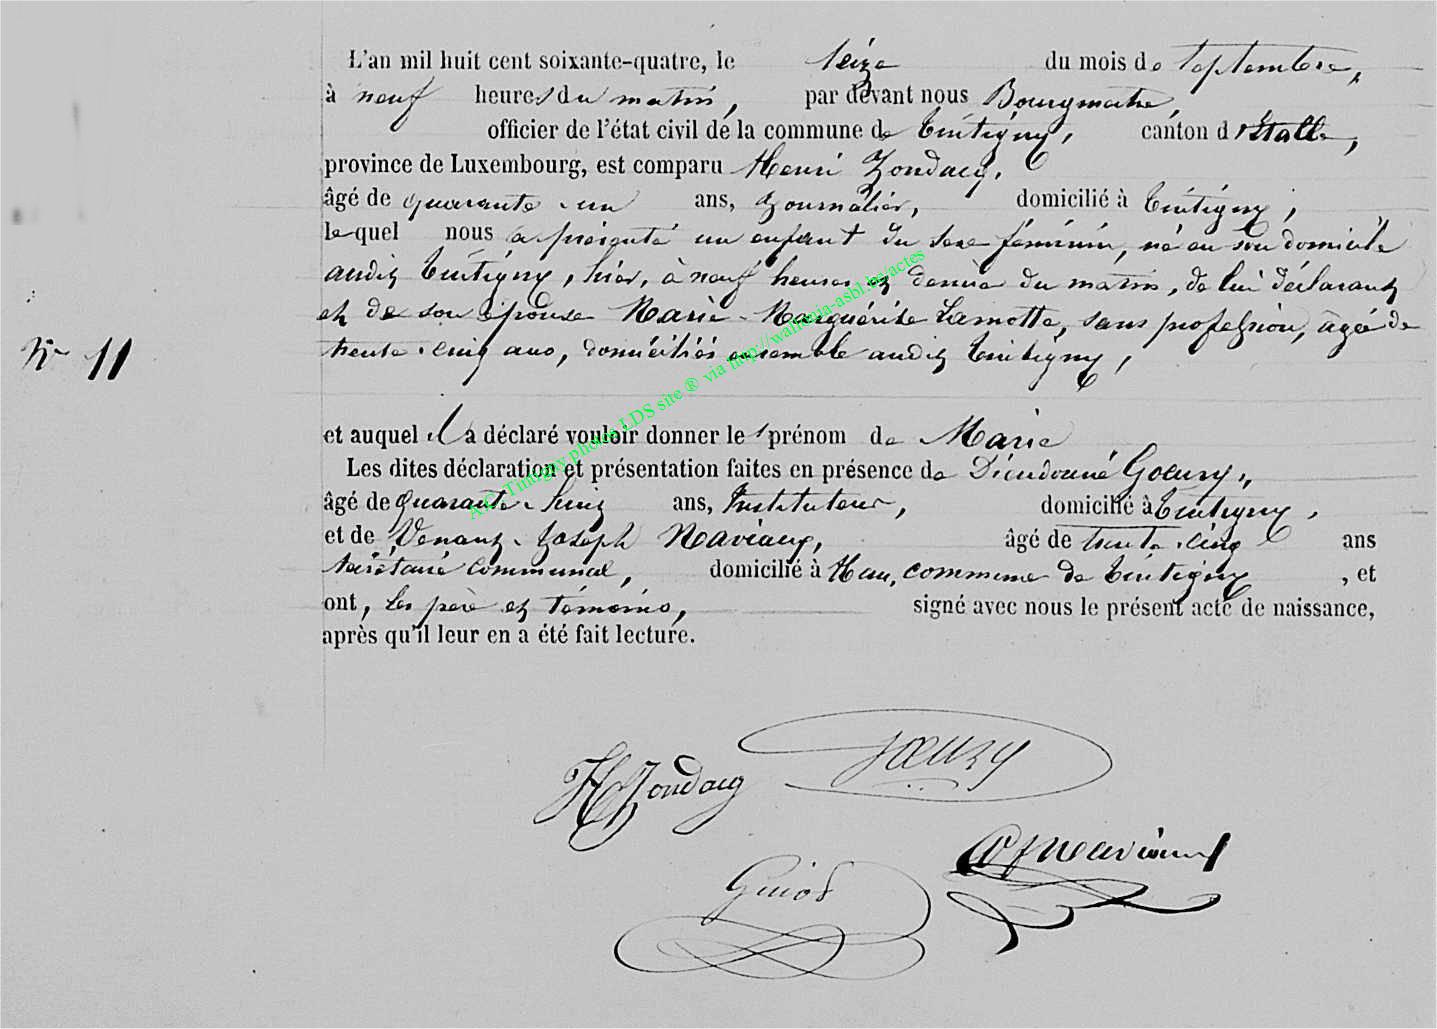 L'an mil huit cent soixante-quatre, le seize du mois de Septembre,
à neuf heures du matin, par devant nous Bourgmestre,
officier de l'état civil de la commune de Tintigny, canton d'Etalle,
province de Luxembourg, est comparu Henri Zondacq,
âgé de quarante-un ans, Journalier, domicilié à Tintigny,
lequel nous a présenté un enfant du sexe féminin, né en son domicile
audit Tintigny, hier, à neuf heures et demie du matin, de lui déclarant
et de son épouse Marie-Marguérite Lamotte, sans profession, âgée de
N° 11
trente-cinq ans, domiciliés ensemble audit Tintigny,
et auquel il a déclaré vouloir donner le prénom de Marie
Les dites déclaration et présentation faites en présence de Dieudonné Goeury,
âgé de quarante-huit ans, Instituteur, domicilié à Tintigny,
et de Venant-Joseph Maviaux, âgé de trente-cinq ans
Secrétaire Communal, domicilié à Han, commune de Tintigny, et
ont, les père et témoins, signé avec nous le présent acte de naissance,
après qu'il leur en a été fait lecture.
A.C. Tintigny photos LDS site ® via http://wallonia-asbl.be/actes
Goeury
H Zondacq
Maviaux
Guiot